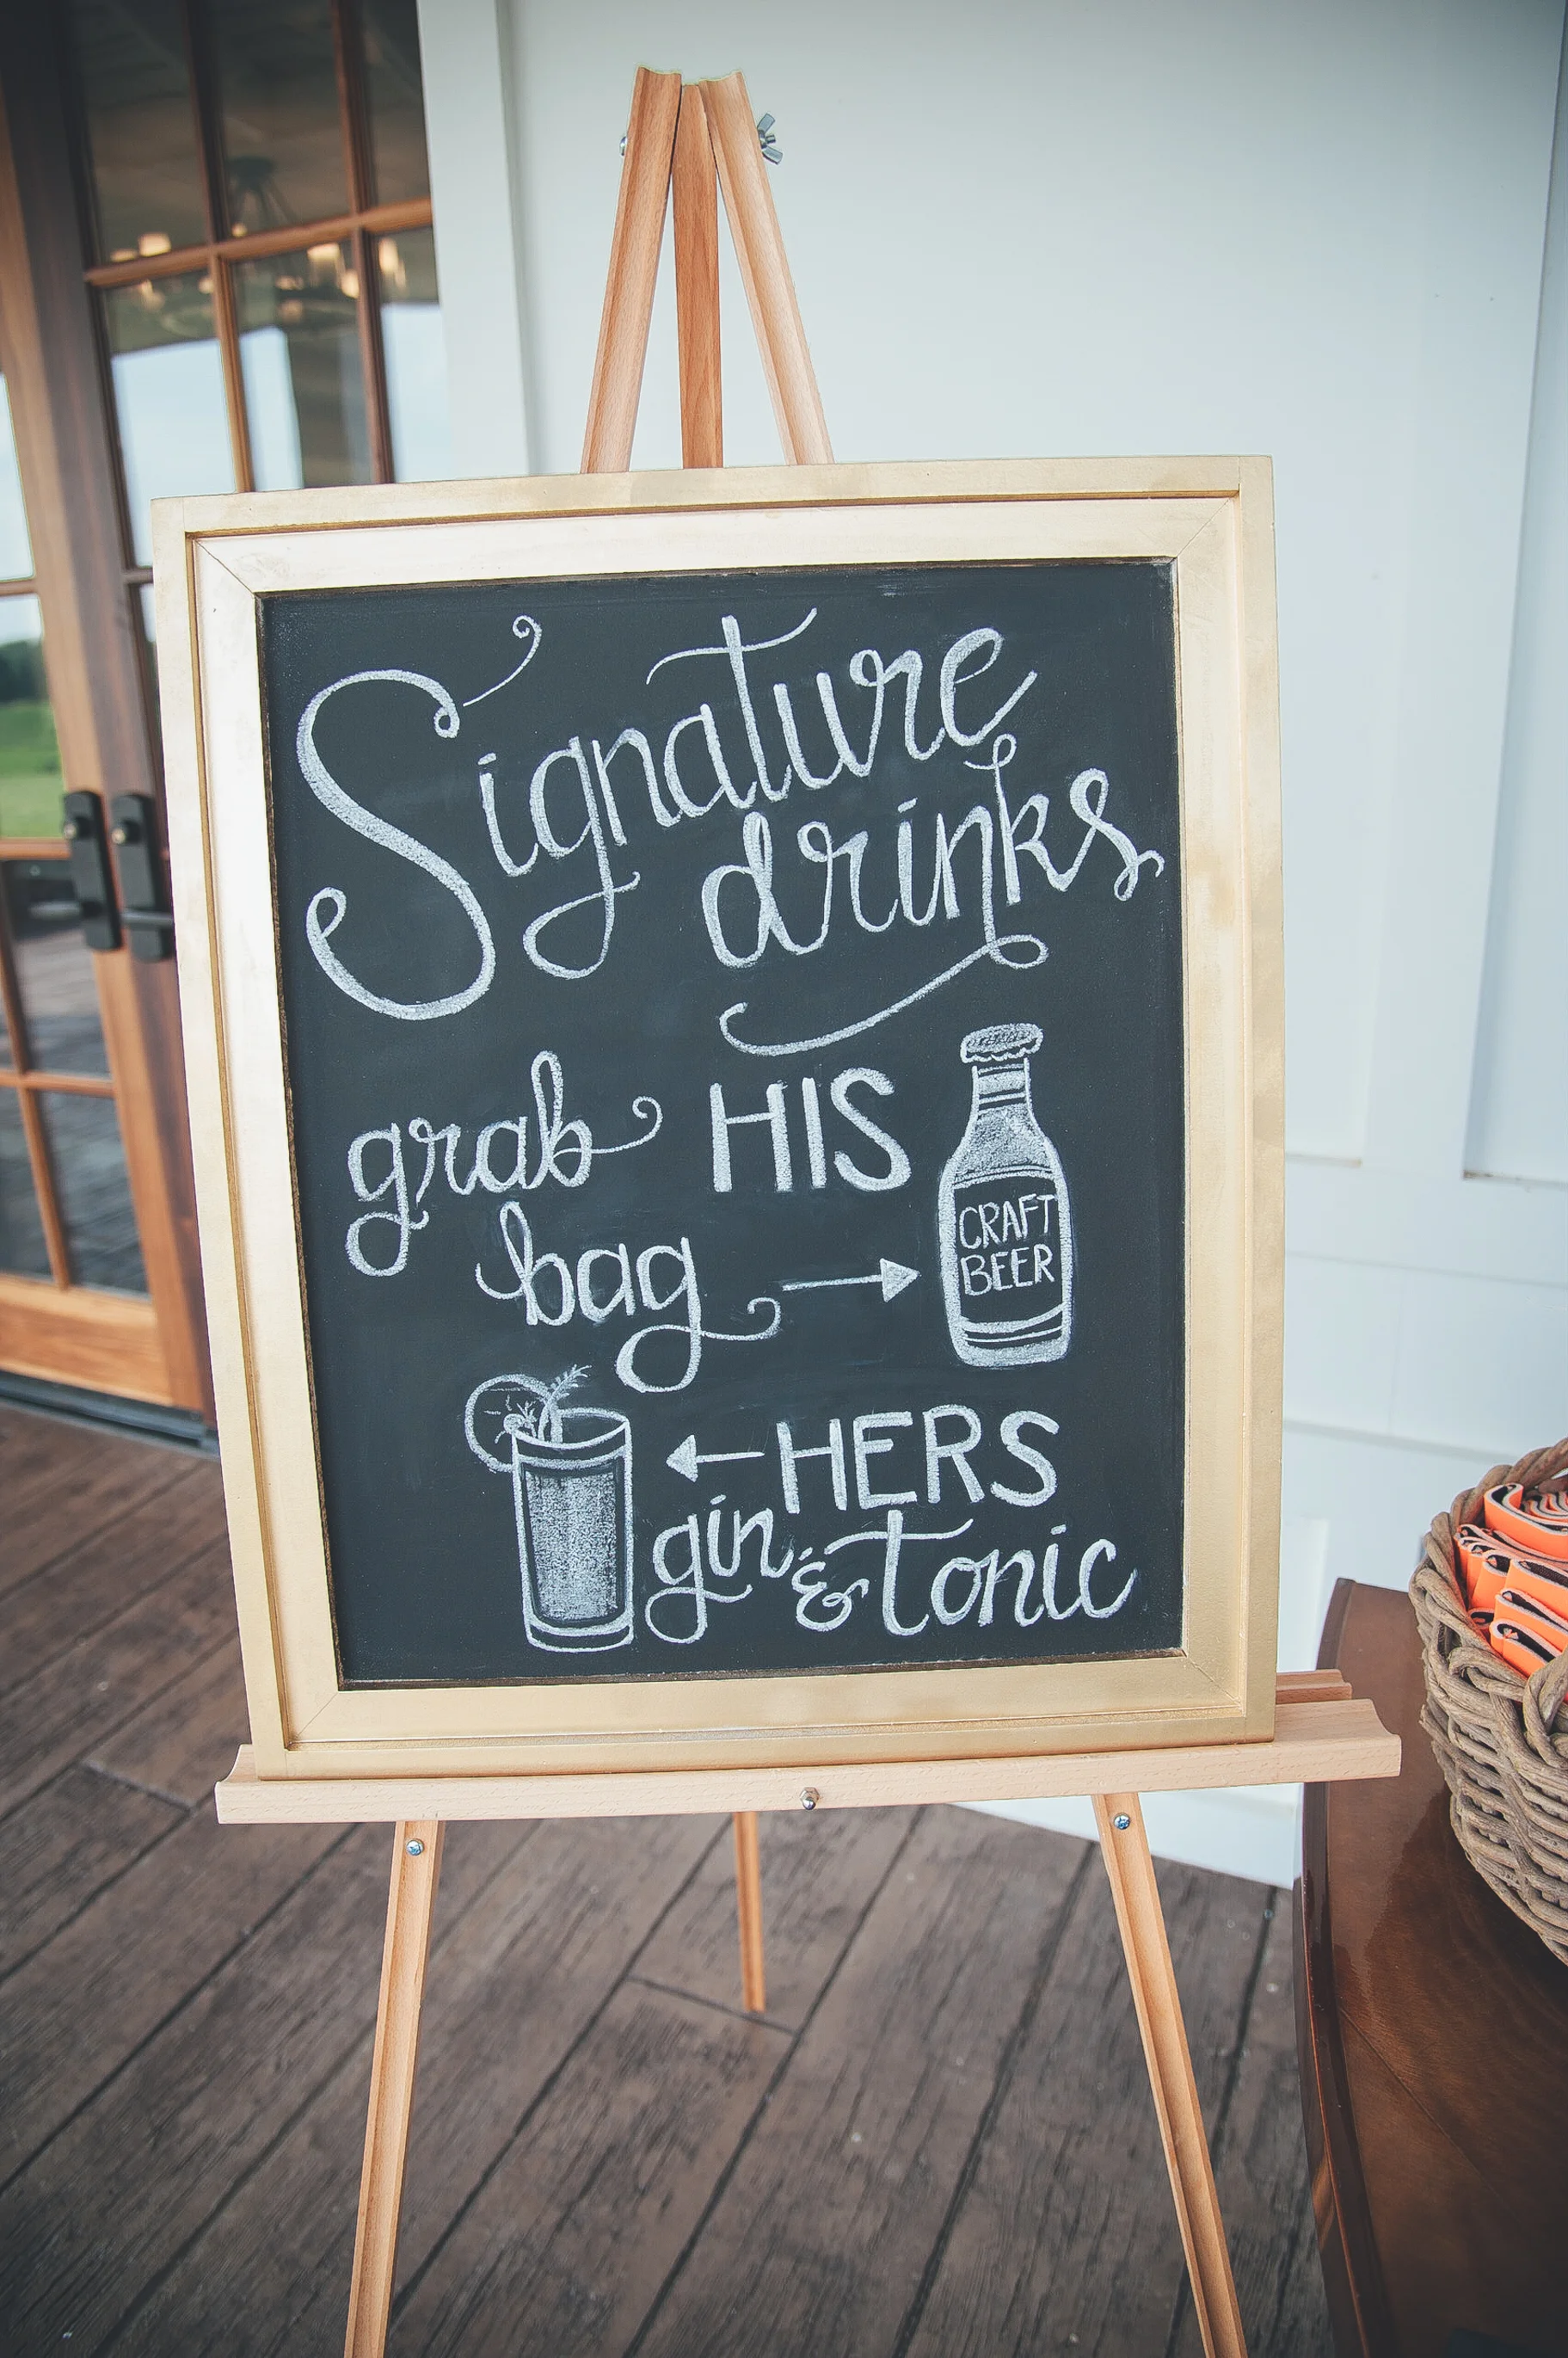 Signature
drinks
grab HIS
bag
CRAFT
BEER
HERS
gin & tonic